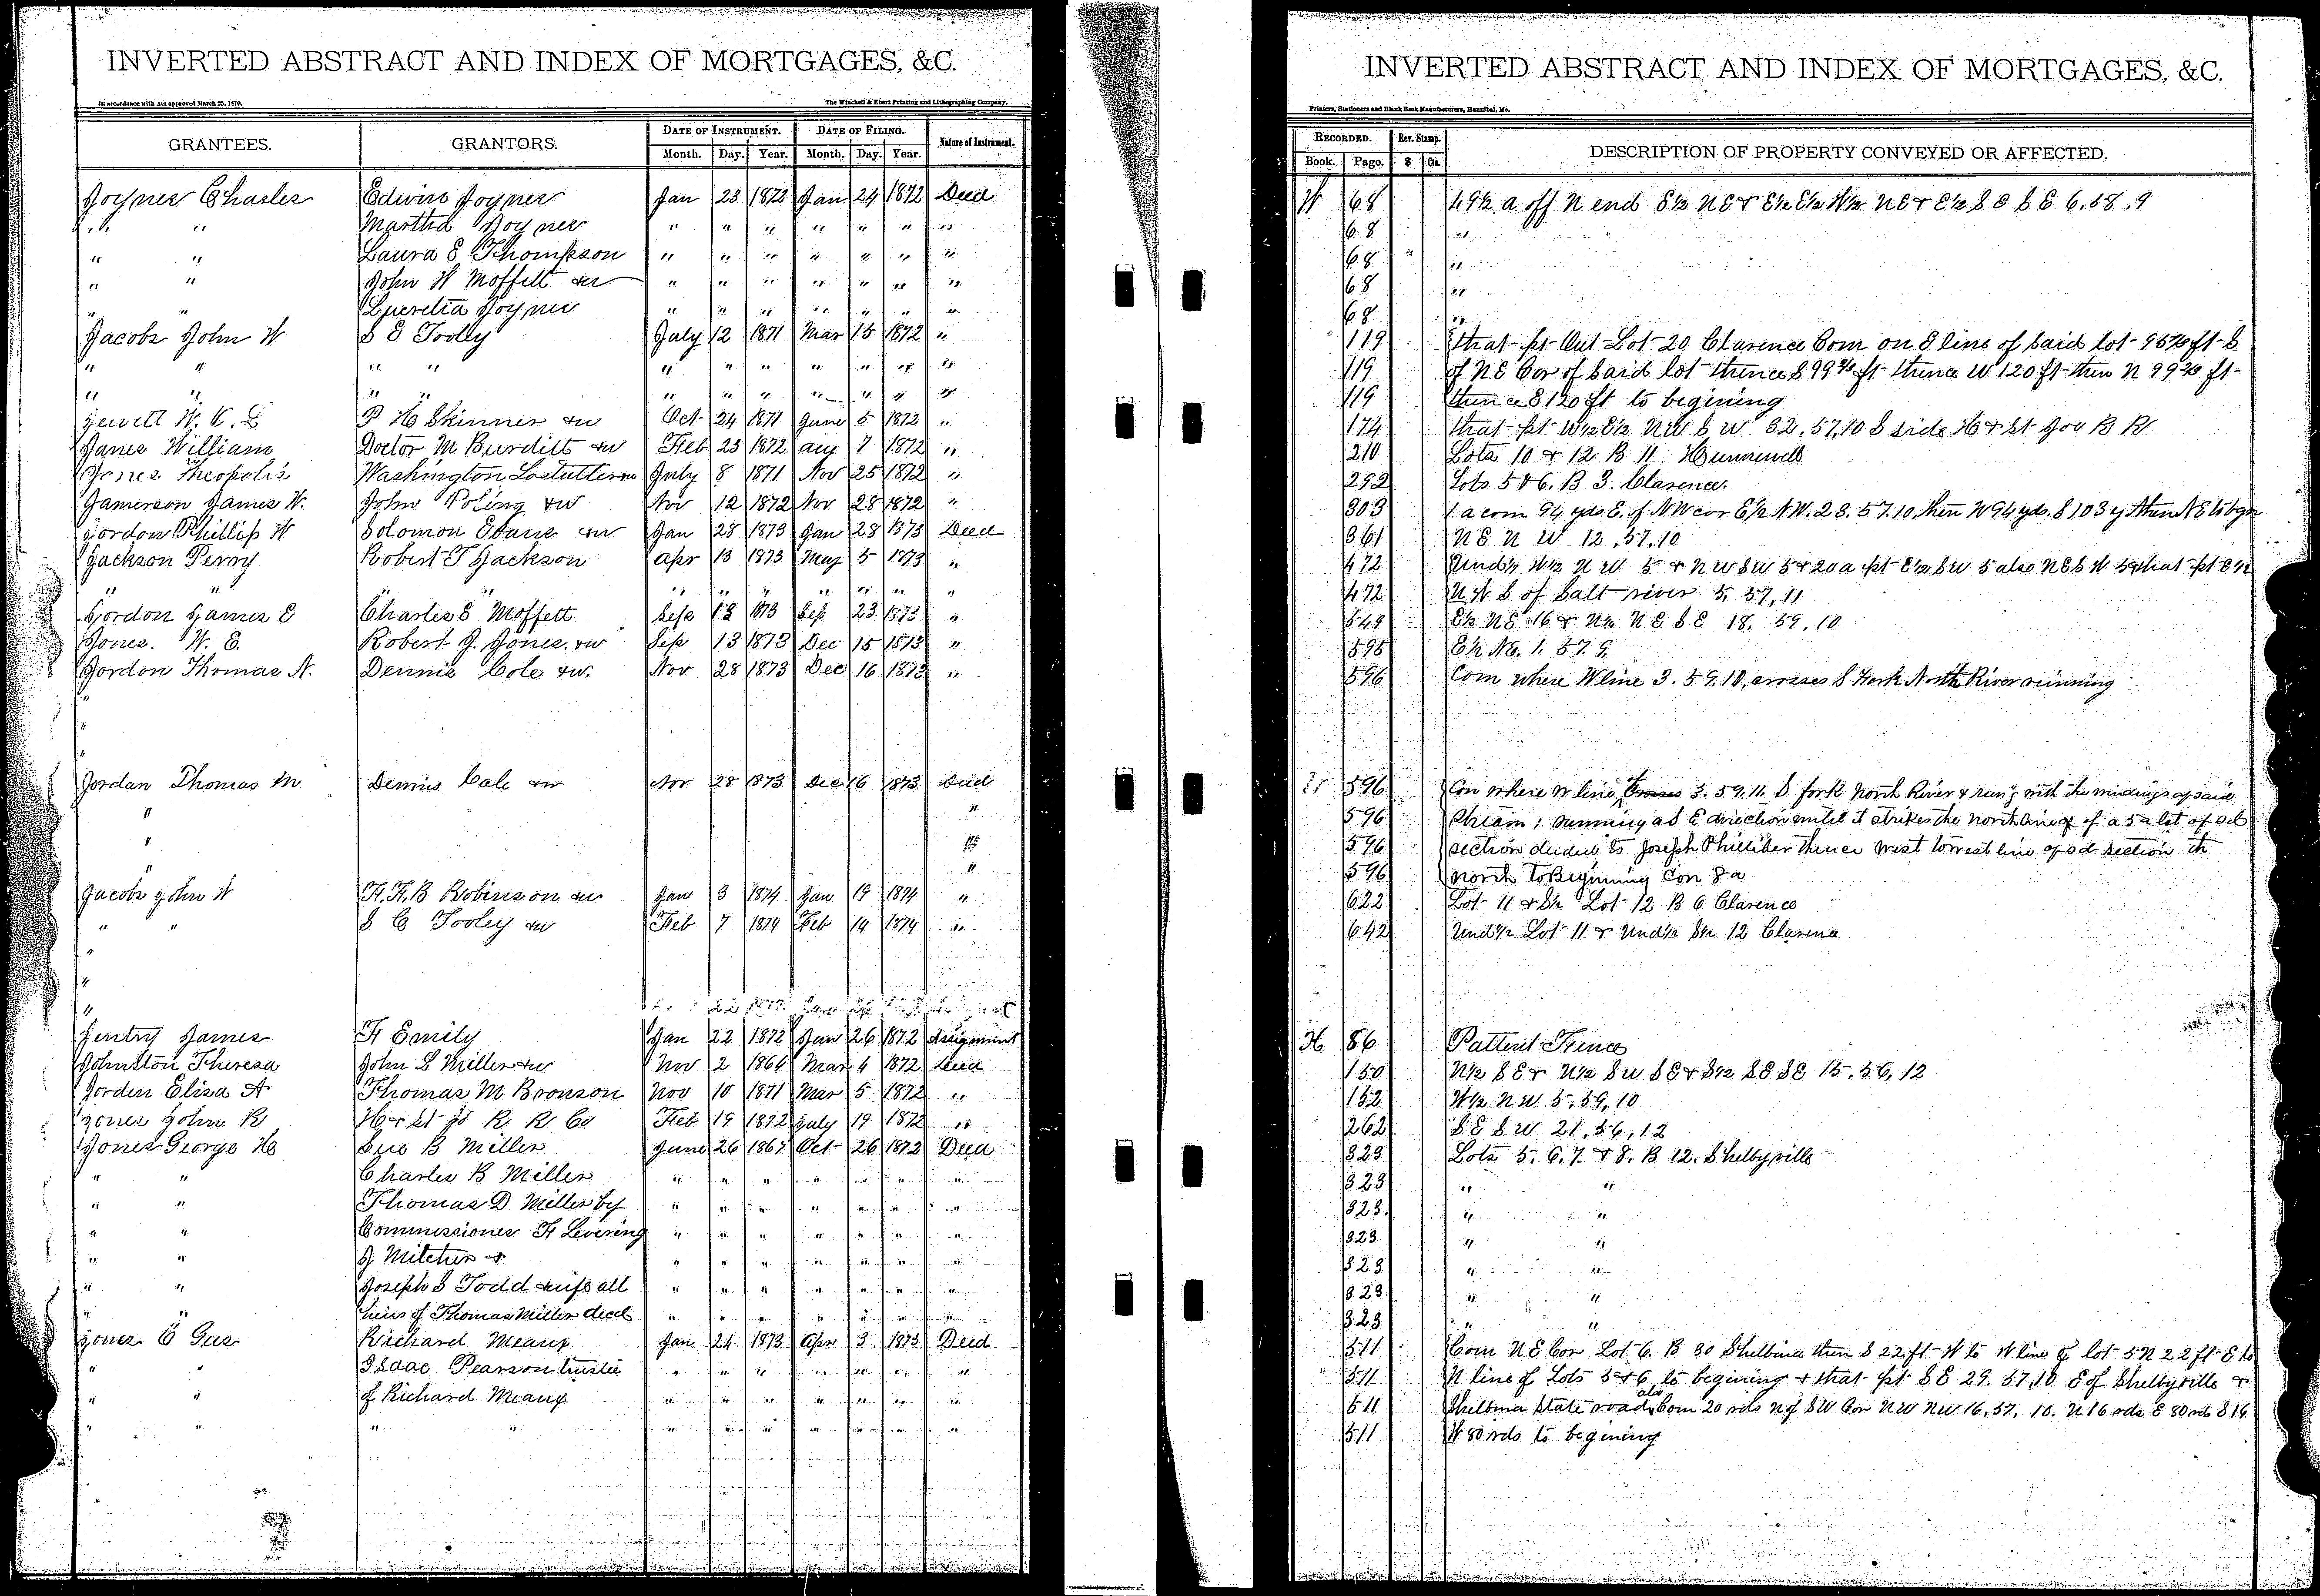 INVERTED ABSTRACT AND INDEX OF MORTGAGES, &C.
In accordance with Act approved March 25, 1870. The Winchell & Ebert Printing and Lithographing Company,
GRANTEES. GRANTORS. DATE OF INSTRUMENT. DATE OF FILING. Nature of Instrument.
Month. Day. Year. Month. Day. Year.
Joyner Charles Edwin Joyner Jan 23 1872 Jan 24 1872 Deed
" " Martha Joyner " " " " " " "
" " Laura E Thompson " " " " " " "
" " John W Moffett &w " " " " " " "
" " Lucretia Joyner " " " " " " "
Jacobs John W S E Tooley July 12 1871 Mar 15 1872 "
" " " " " " " " " " "
" " " " " " " " " " "
Jewett W. C. L P H Skinner &w Oct 24 1871 June 5 1872 "
Janes William Doctor M Burditt &w Feb 23 1872 Aug 7 1872 "
Jones Theopolis Washington Lostutter &w July 8 1871 Nov 25 1872 "
Jamerson James W. John Poling &w Nov 12 1872 Nov 28 1872 "
Jordon Phillip W Solomon Evans &w Jan 28 1873 Jan 28 1873 Deed
Jackson Perry Robert T Jackson Apr 13 1873 May 5 1873 "
" " " " " " " " "
Jordon James E Charles E Moffett Sep 18 1873 Sep 23 1873 "
Jones. W. E. Robert J. Jones. &w Sep 13 1873 Dec 15 1873 "
Jordon Thomas N. Dennis Cole &w. Nov 28 1873 Dec 16 1873 "
"
"
Jordan Thomas M Dennis Cale &w Nov 28 1873 Dec 16 1873 Deed
" "
" "
"
Jacobs John W H. H. B Robinson &w Jan 3 1874 Jan 19 1874 "
" " S C Tooley &w Feb 7 1874 Feb 14 1874 "
"
"
"
Jentry James H Emily Jan 22 1872 Jan 26 1872 Assignment
Johnston Theresa John L Miller &w Nov 2 1864 Mar 4 1872 Deed
Jorden Eliza A Thomas M Bronson Nov 10 1871 Mar 5 1872 "
Jones John R H & St Jo R R Co Feb 19 1872 July 19 1872 "
Jones George H Sue B Miller June 26 1867 Oct 26 1872 Deed
" " Charles B Miller " " " " " " "
" " Thomas D Miller by " " " " " " "
" " Commissioner H Levering " " " " " " "
" " J Milcher & " " " " " " "
" " Joseph S Todd wife all " " " " " " "
" " heirs of Thomas Miller decd " " " " " " "
Jones C Gus Richard Meaux Jan 24 1873 Apr 3 1873 Deed
" " Isaac Pearson trustee " " " " " " "
" " of Richard Meaux " " " " " " "
" " " " " " " " " " "
INVERTED ABSTRACT AND INDEX OF MORTGAGES, &C.
Printers, Stationers and Blank Book Manufacturers, Hannibal, Mo.
RECORDED. Rev. Stamp. DESCRIPTION OF PROPERTY CONVEYED OR AFFECTED.
Book. Page. $ Cts.
W 68 49½ a off N end E½ NE & E½ E½ W½ NE & E½ S E S E 6.58.9
68 "
68 "
68 "
68 "
119 that pt Out Lot 20 Clarence Com on E line of said lot ft S
119 of NE Cor of said lot thence S ft thence W 120 ft then N ft
119 thence E 120 ft to begining
174 that pt W½ E½ NW S W 32.57.10 S side H & St Joe R R
210 Lots 10 & 12 B 11 Hunnewell
292 Lots 5 & 6. B 3. Clarence.
303 1. a com 94 yds E. of NW cor E½ NW. 23.57.10, then W 94 yds. S 103 y then NE to bgn
361 N E N W 12.57.10
472 Und½ W½ N W 5 & N W S W 5 & 20 a pt E½ SW 5 also NE S W 5 & that pt E½
472 N W S of Salt river 5, 57, 11
549 E½ NE 16 & N½ N E S E 18. 59, 10
595 E½ NE. 1. 57. 9.
596 Com where W line 3. 59.10, crosses S Fork North River running
596 Com where W line Crosses 3. 59.11. S fork North River & run'g with the mindings of said
596 Stream; running a S E direction until it strikes the north line of a 5 a lot of sd
596 section deeded to Joseph Philliber thence West to west line of sd section th
596 north To Beginning Con 8 a
622 Lot 11 & S½ Lot 12 B 6 Clarence
642 Und½ Lot 11 & Und½ S½ 12 Clarence
H 86 Pattent Fence
150 N½ S E & N½ S W S E & S½ S E S E 15. 56, 12
152 W½ N W. 5. 59, 10
262 S E S W 21, 56, 12
323 Lots 5. 6. 7. & 8. B 12. Shelbyville
323 " "
323 " "
323 " "
323 " "
323 " "
323 " "
511 Com N E Cor Lot 6. B 30 Shelbina then S 22 ft W to W line of lot 5 N 22 ft E to
511 N line of Lots 5 & 6 to begining & that pt S E 29. 57.10 E of Shelbyville &
511 Shelbina State road also Com 20 rds N of SW Cor NW NW 16, 57, 10. N 16 rds E 80 rds S 16
511 W 80 rds to begening